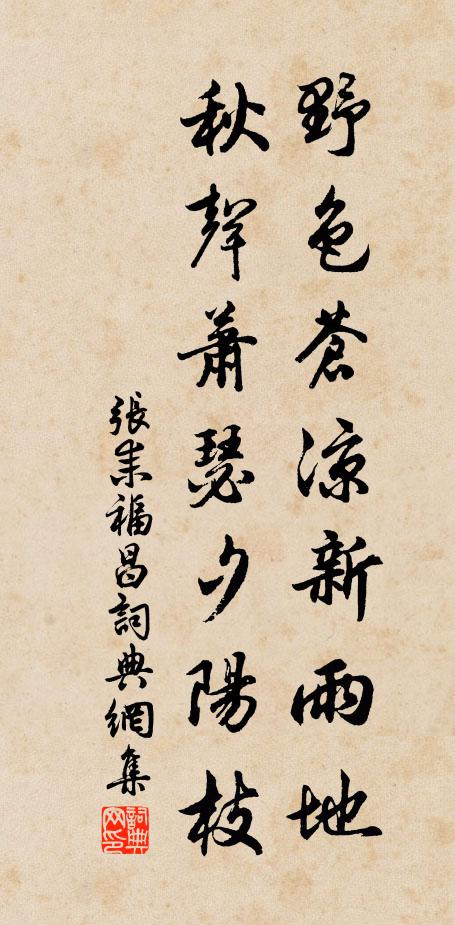 野色蒼涼新雨地
秋聲蕭瑟夕陽枝
張耒福昌詞典網集
詞典网印